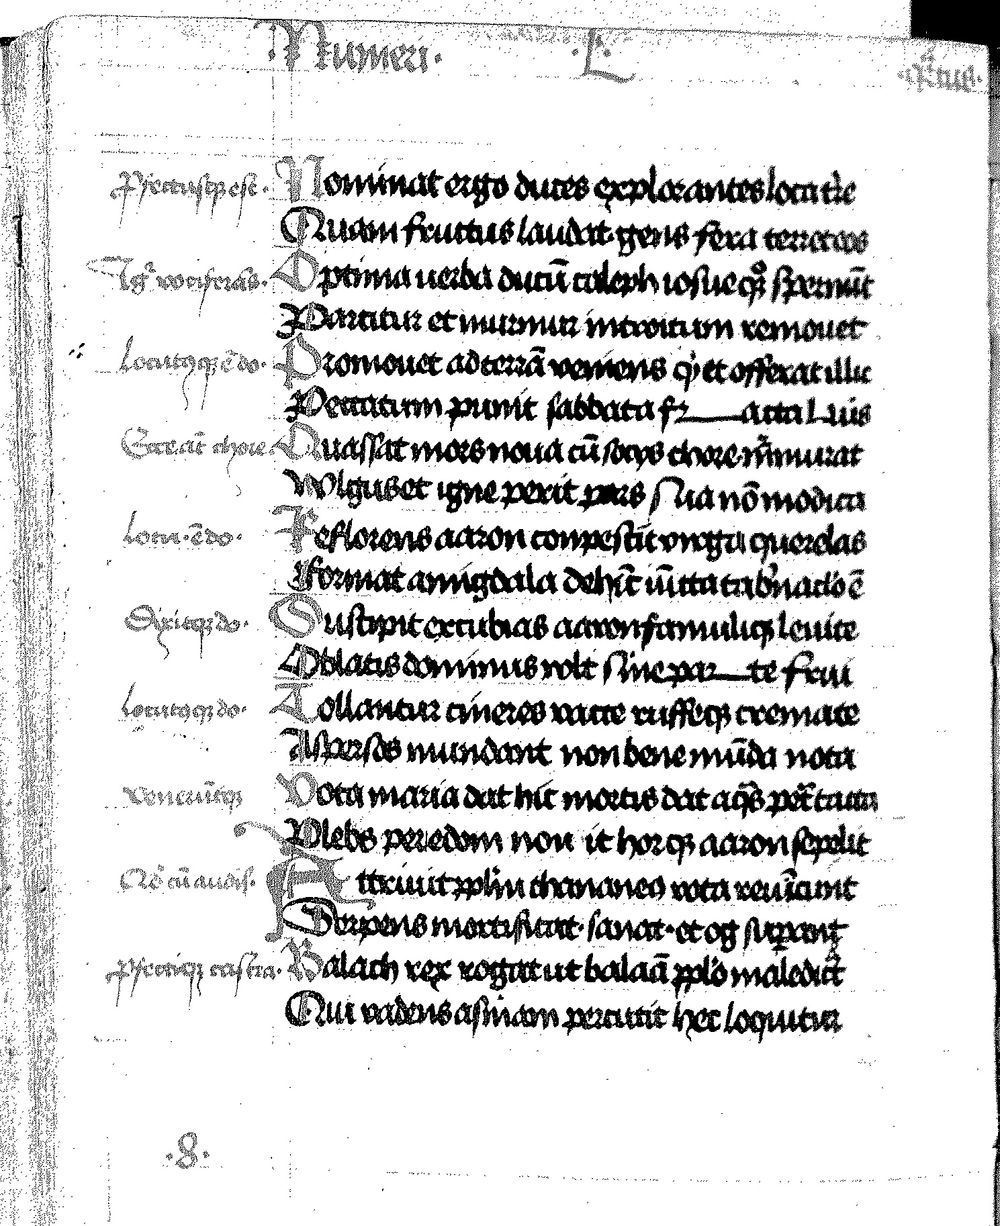 Numeri · L · 4rtus ·
Pfectusqꝫ est · Nominat ergo duces explorantes loca tr̄e
Quam fructus laudat · gens fera terret eos
Igr̄ vociferās · Optima uerba ducū caleph iosueqꝫ spernūt
Partitur et murmur introitum remouet
Locutꝰqꝫ ē do · Promouet ad terrā veniens qͥ et offerat illic
Peccatum punit sabbata fr acta Luis
Ecce at̄ chore Quassat mors noua cū socys chore mͬmurat
Wlgus et igne perit pars sua nō modica
Locu · ē do · Reflorens aaron conpescuit virga querelas
Format amigdala dehīc iūcta tab̄nac̄lo ē
Dixitqꝫ do · Suscipit excubias aaron famuliqꝫ leuite
Oblatis dominus volt sine par te frui
Locutꝰqꝫ do · Tollantur cineres vacce ruffeqꝫ cremate
Aspersos mundant non bene mūda nota
Veneruūtqꝫ Vota maria dat hic mortis dat aq̄s petra
Plebs per edom non it horqꝫ aaron sepelit
Qd̄ cū audis · Attriuit pplm̄ chananeo vota reuīcunt
Serpens mortificat · sanat · et og superant
Pfectiqꝫ castra · Balach rex rogat ut balaā pplo maledicat
Qui vadens asinam percutit hec loquitur
· 8 ·